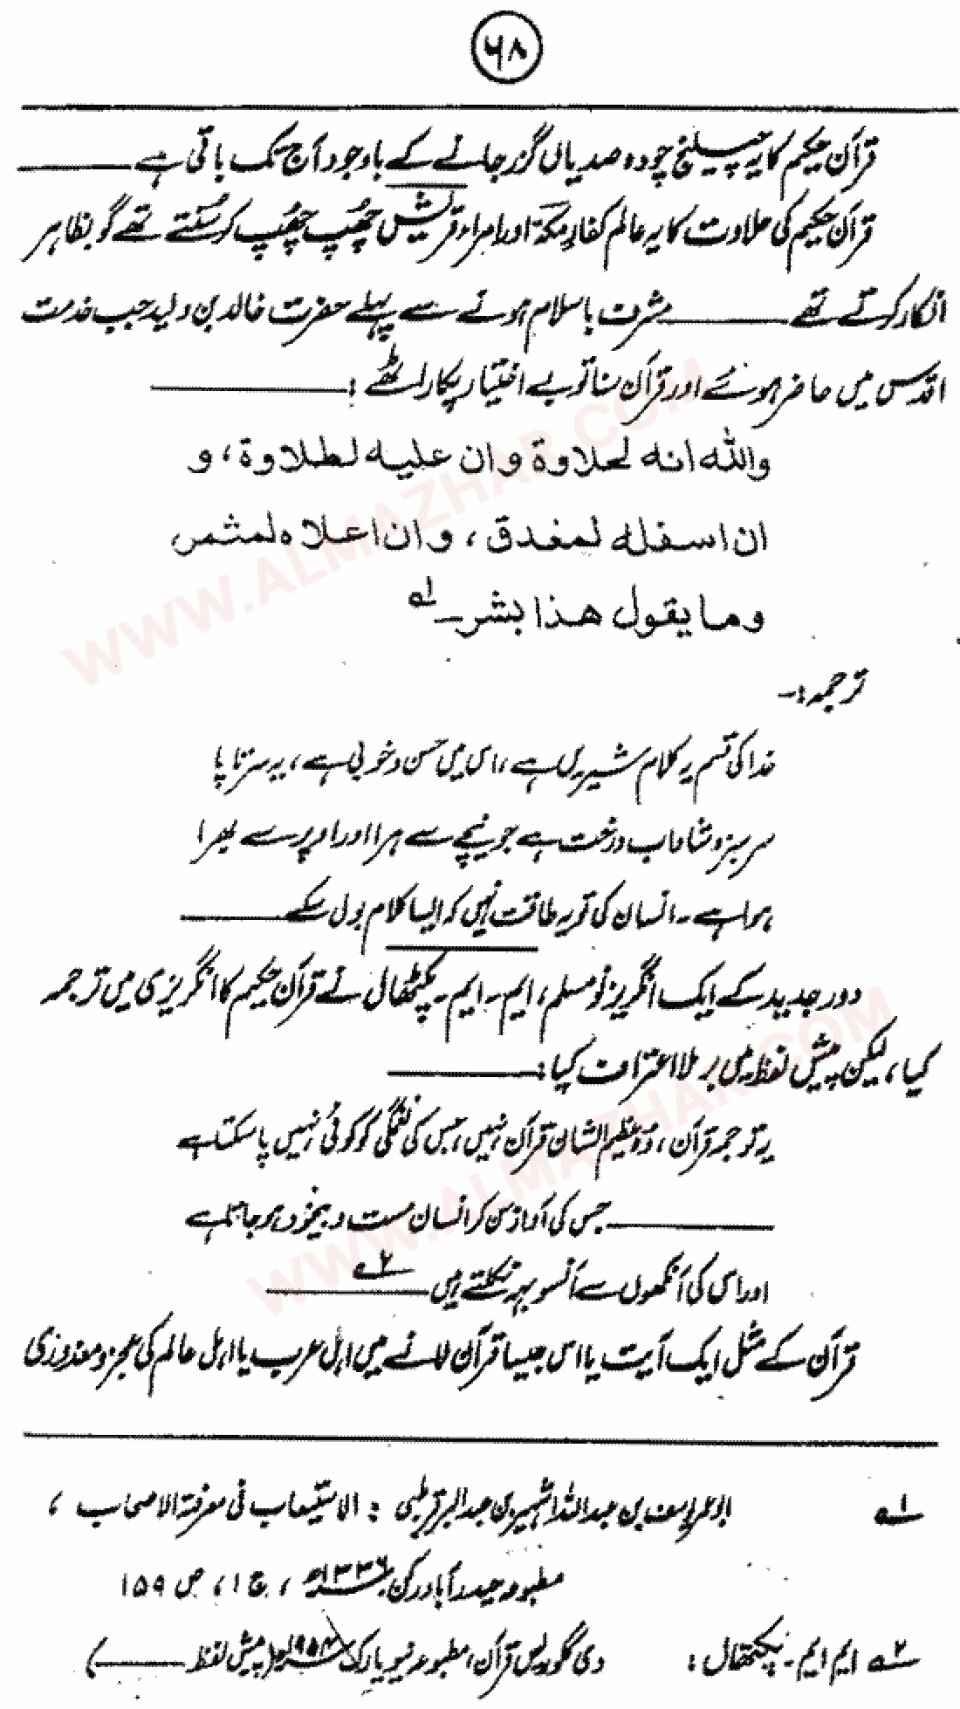 ۶۸
قرآن حکیم کا یہ چیلنج چودہ صدیاں گزر جانے کے باوجود آج تک باقی ہے ———
قرآن حکیم کی حلاوت کا یہ عالم کفارِ مکہ اور امراء قریش چھپ چھپ کر سُنتے تھے گو بظاہر
انکار کرتے تھے ——— مشرف باسلام ہونے سے پہلے حضرت خالد بن ولید جب خدمت
اقدس میں حاضر ہوئے اور قرآن سنا تو بے اختیار پکار اٹھے : ———
والله انه لحلاوة وان عليه لطلاوة ، و
ان اسفله لمغدق ، وان اعلاه لمثمر
وما يقول هذا بشر ـ ؂۱
ترجمہ :۔
خدا کی قسم یہ کلام شیریں ہے ، اس میں حسن و خوبی ہے ، یہ سرتاپا
سرسبز و شاداب درخت ہے جو نیچے سے ہرا اور اوپر سے بھرا
ہوا ہے ۔ انسان کی تو یہ طاقت نہیں کہ ایسا کلام بول سکے ———
دور جدید کے ایک انگریز نو مسلم ، ایم ۔ ایم ۔ پکتھال نے قرآن حکیم کا انگریزی میں ترجمہ
کیا ، لیکن پیش لفظ میں برملا اعتراف کیا : ———
یہ ترجمہ قرآن ، وہ عظیم الشان قرآن نہیں ، جس کی نغمگی کو کوئی نہیں پا سکتا ہے
——— جس کی آواز سن کر انسان مست و بیخود ہو جاتا ہے
اور اس کی آنکھوں سے آنسو بہہ نکلتے ہیں ——— ؂۲
قرآن کے مثل ایک آیت یا اس جیسا قرآن لانے میں اہل عرب یا اہل عالم کی عجز و معذوری
؂۱ ابو عمر یوسف بن عبداللہ الشہیر بن عبدالبر قرطبی : الاستیعاب فی معرفۃ الاصحاب ،
مطبوعہ حیدر آباد دکن ۱۳۳۶ھ ، ج ۱ ، ص ۱۵۹
؂۲ ایم ایم ۔ پکتھال : دی گلوریس قرآن ، مطبوعہ نیویارک (پیش لفظ ———)
WWW.ALMAZHAR.COM
WWW.ALMAZHAR.COM